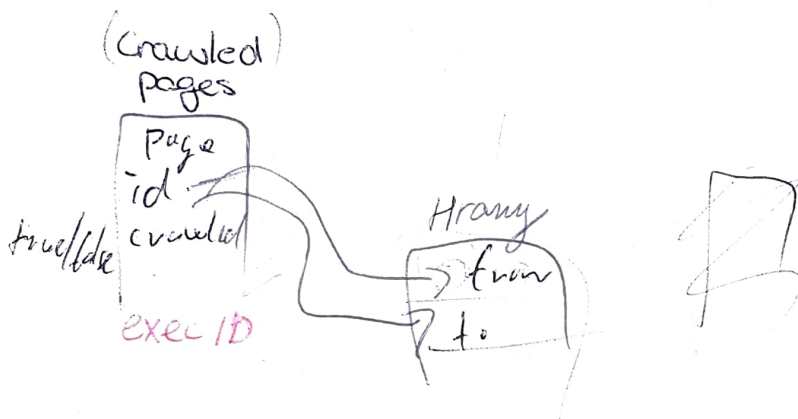 (Crawled)
pages
page
id
crawled
true/false
exec ID
Hrany
from
to